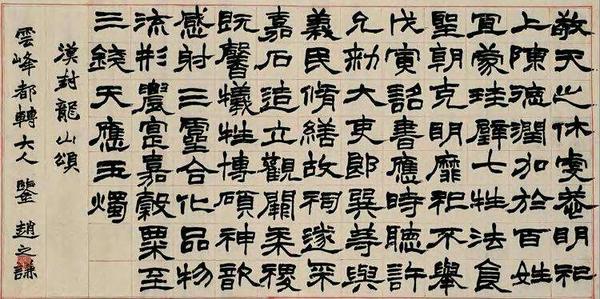 敬天之休虔恭明祀
上陳德潤加於百姓
宜蒙珪璧七牲法食
聖朝克明靡祀不舉
戊寅詔書應時聽許
允勑大吏郎巽等與
義民脩繕故祠遂采
嘉石造立觀闕黍稷
既馨犧牲博碩神歆
感射三靈合化品物
流形農寔嘉穀粟至
三錢天應玉燭
漢封龍山頌
雲峰都轉大人鑒 趙之謙